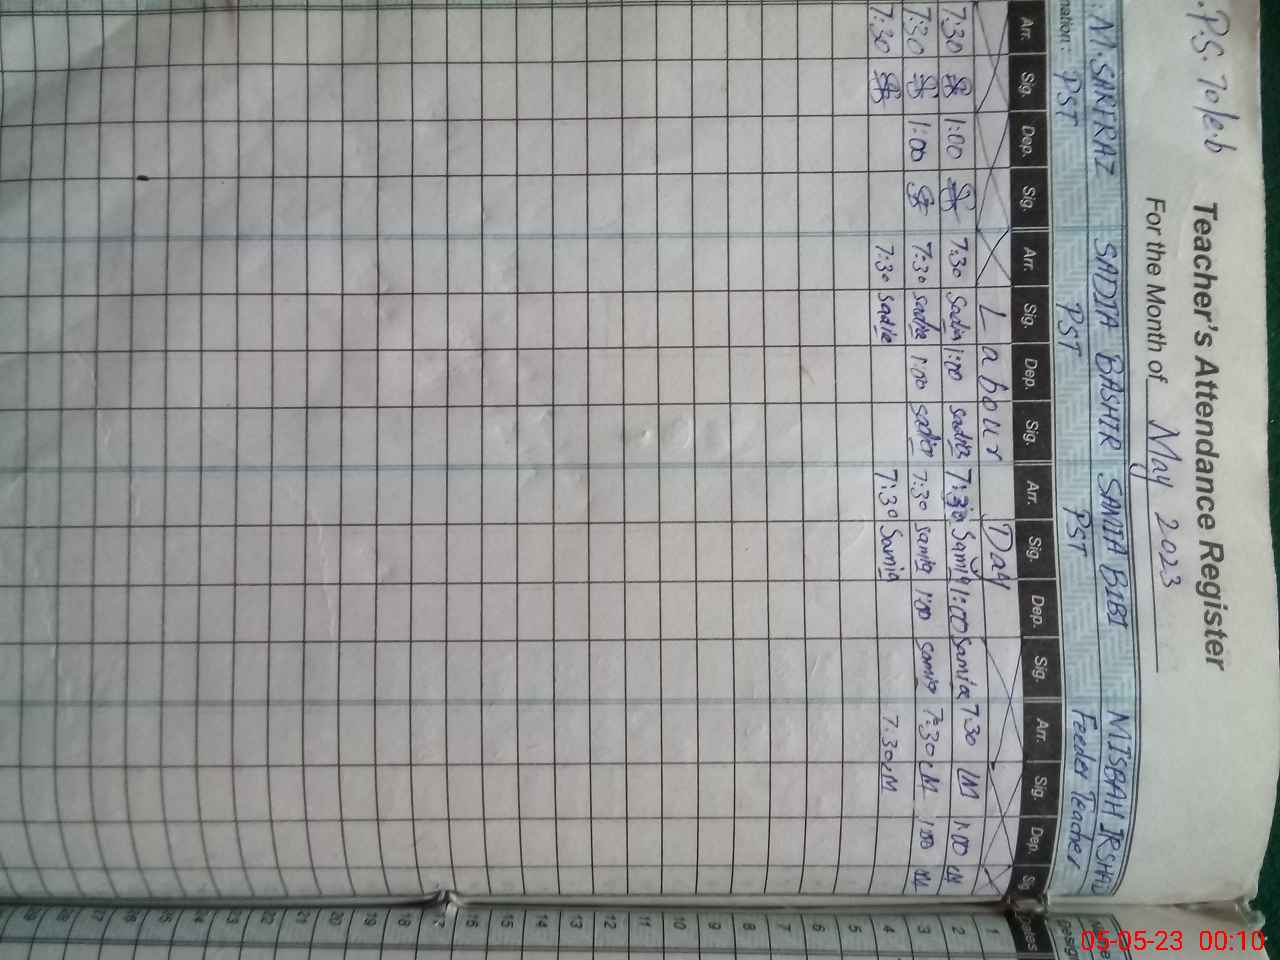 P.S. 70/e.b
Teacher's Attendance Register
For the Month of May 2023
M.SARFRAZ SADIA BASHIR SAMIA BIBI MISBAH IRSHAD
nation: PST PST PST Feeder Teacher
Arr. Sig. Dep. Sig. Arr. Sig. Dep. Sig. Arr. Sig. Dep. Sig. Arr. Sig. Dep. Sig. Dates
Labour Day 1
7:30 1:00 7:30 Sadia 1:00 Sadia 7:30 Samia 1:00 Samia 7:30 M 1:00 M 2
7:30 1:00 7:30 Sadia 1:00 Sadia 7:30 Samia 1:00 Samia 7:30 M 1:00 M 3
7:30 7:30 Sadia 7:30 Samia 7:30 M 4
5
6
7
8
9
10
11
12
13
14
15
16
17
18
19
20
21
22
23
24
25
26
27
28
29
05-05-23 00:10